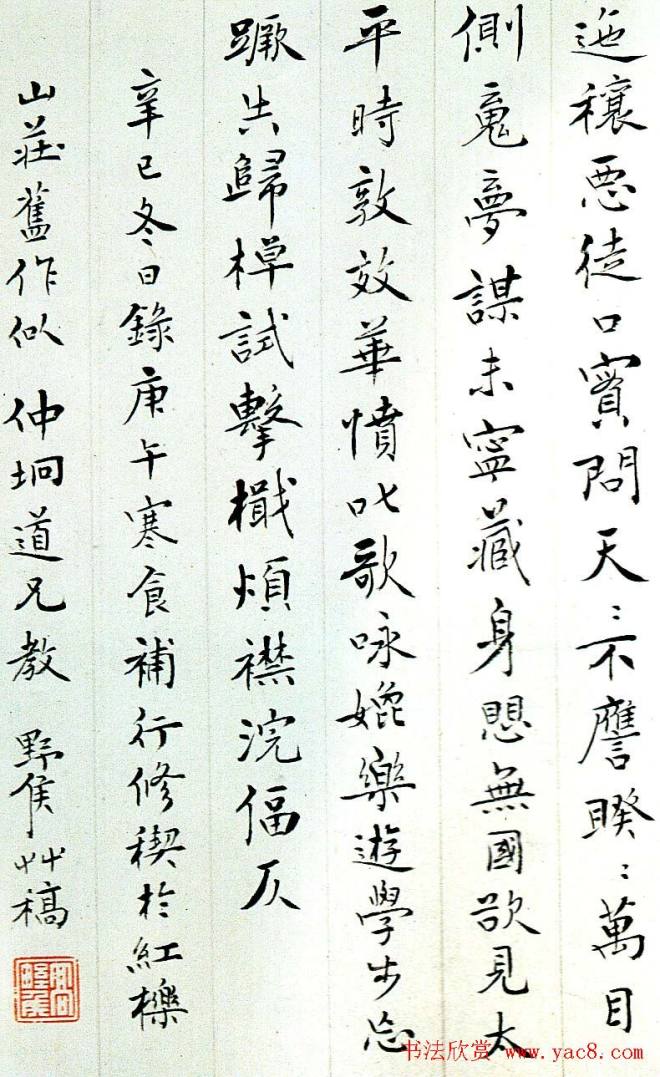 迤穰惡徒口實問天天不譍睽睽萬目
側鬼夢謀未寧藏身愳無國欲見太
平時敦效華憤叱歌咏媲樂遊學步忘
蹶告歸棹試擊檝煩襟浣偪仄
辛巳冬日錄庚午寒食補行修稧於紅櫟
山莊舊作似 仲坰道兄教 野侯艸稿
书法欣赏 www.yac8.com